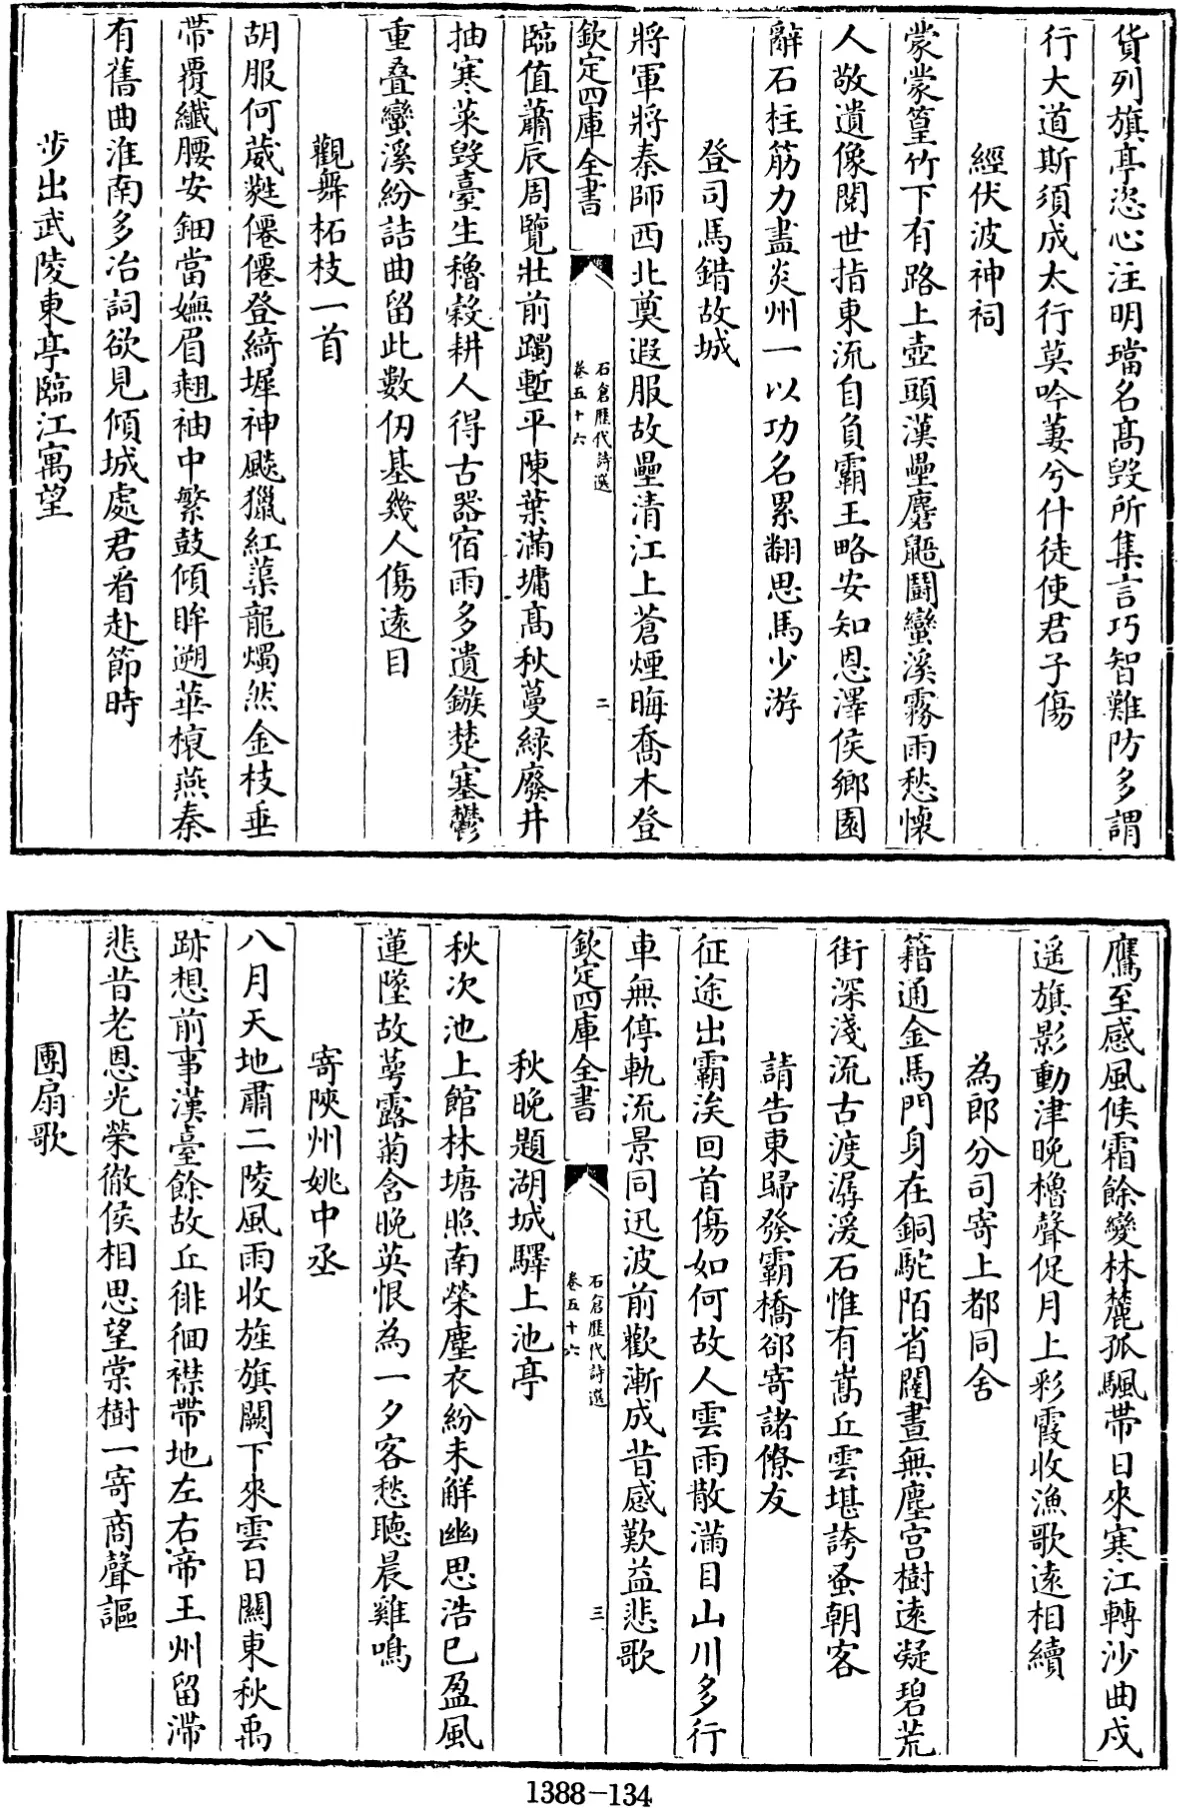 貨列旗亭恣心注明璫名髙毁所集言巧智難防多謂
行大道斯須成太行莫吟萋兮什徒使君子傷
經伏波神祠
蒙蒙篁竹下有路上壺頭漢壘麏鼯鬪蠻溪霧雨愁懷
人敬遺像閱世指東流自負霸王略安知恩澤侯鄉園
辭石柱筋力盡炎州一以功名累翻思馬少游
登司馬錯故城
將軍將秦師西北奠遐服故壘清江上蒼煙晦喬木登
欽定四庫全書
石倉歷代詩選
卷五十六
二
臨值蕭辰周覽壯前躅塹平陳葉滿墉髙秋蔓綠廢井
抽寒菜毁臺生穭穀耕人得古器宿雨多遺鏃楚塞鬱
重叠蠻溪紛詰曲留此數仞基幾人傷遠目
觀舞柘枝一首
胡服何葳蕤僊僊登綺墀神飈獵紅蕖龍燭然金枝垂
帶覆纖腰安鈿當嫵眉翹袖中繁鼓傾眸遡華榱燕秦
有舊曲淮南多冶詞欲見傾城處君看赴節時
步出武陵東亭臨江寓望
鷹至感風候霜餘變林麓孤颿帶日來寒江轉沙曲戍
遥旗影動津晚櫓聲促月上彩霞收漁歌遠相續
為郎分司寄上都同舍
籍通金馬門身在銅駝陌省闥晝無塵宫樹遠凝碧荒
街深淺流古渡潺湲石惟有嵩丘雲堪誇蚤朝客
請告東歸發霸橋卻寄諸僚友
征途出霸涘回首傷如何故人雲雨散滿目山川多行
車無停軌流景同迅波前歡漸成昔感歎益悲歌
欽定四庫全書
石倉歷代詩選
卷五十六
三
秋晚題湖城驛上池亭
秋次池上館林塘照南榮塵衣紛未解幽思浩已盈風
蓮墜故萼露菊含晚英恨為一夕客愁聽晨雞鳴
寄陝州姚中丞
八月天地肅二陵風雨收旌旗闕下來雲日關東秋禹
跡想前事漢臺餘故丘徘徊襟帶地左右帝王州留滯
悲昔老恩光榮徹侯相思望棠樹一寄商聲謳
團扇歌
1388-134